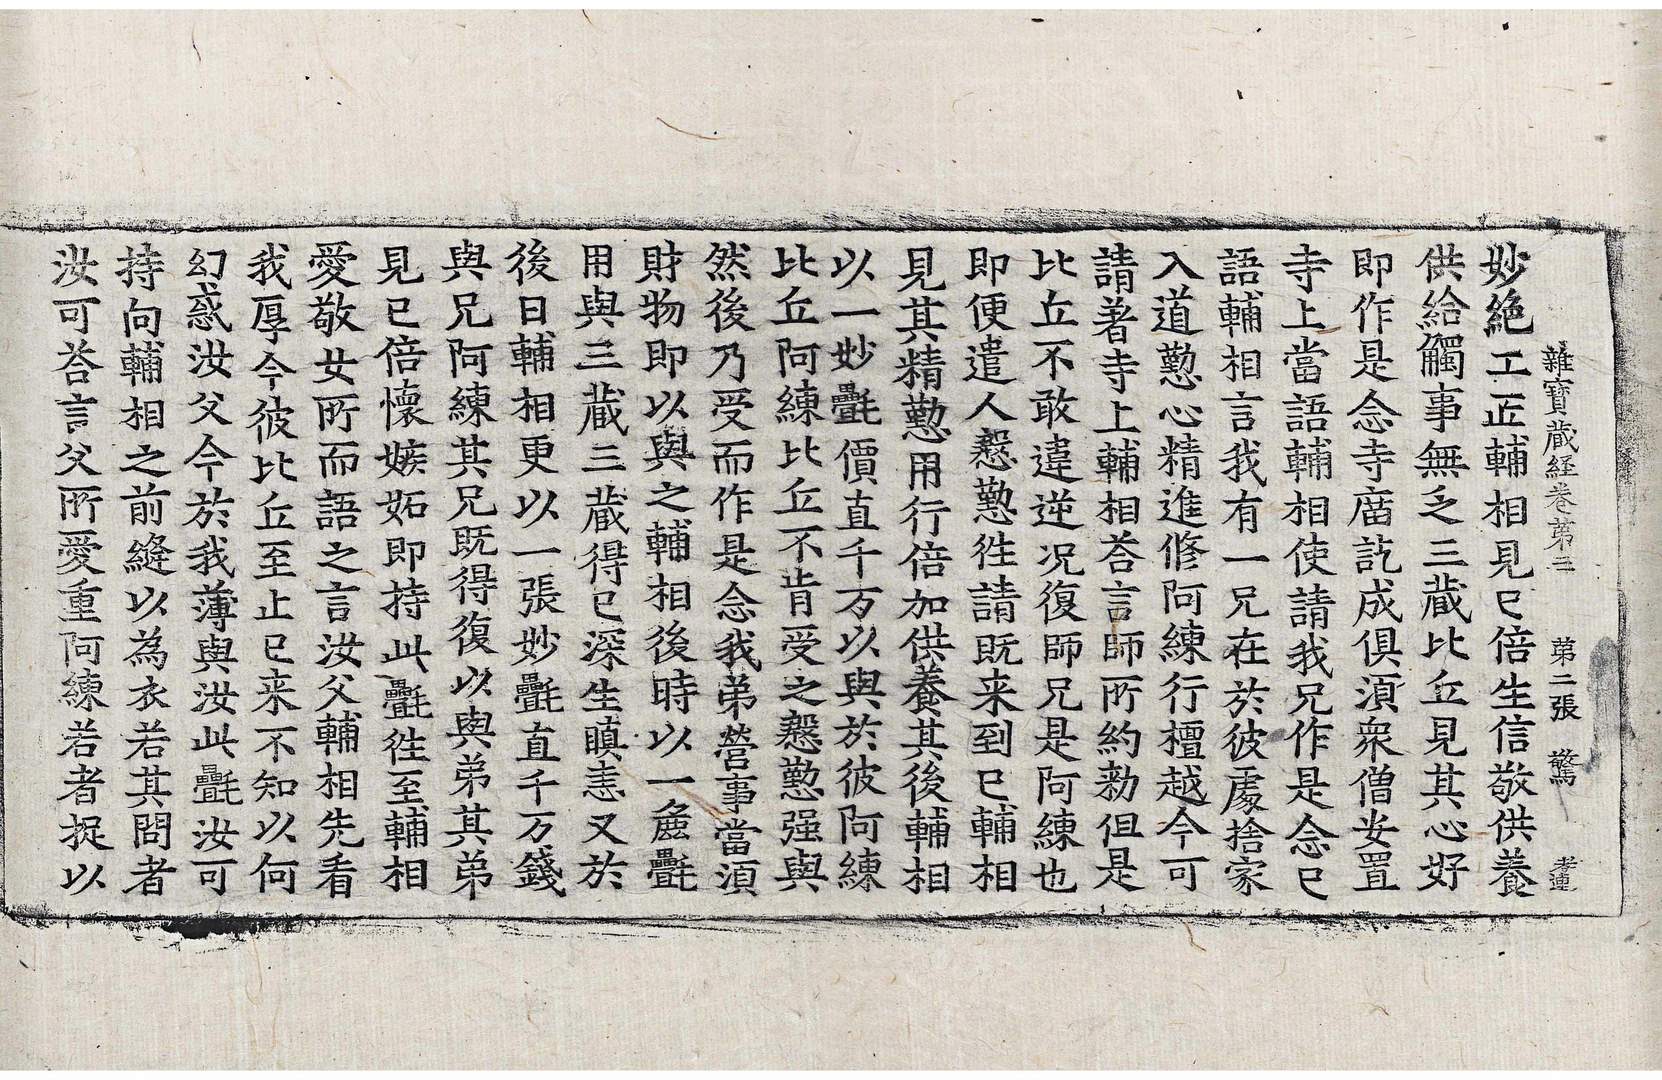 雜寶藏經卷第三 第二張 驚 孝連
妙絶工正輔相見已倍生信敬供養
供給觸事無乏三藏比丘見其心好
即作是念寺廟訖成俱湏衆僧安置
寺上當語輔相使請我兄作是念已
語輔相言我有一兄在於彼處捨家
入道懃心精進修阿練行檀越今可
請著寺上輔相荅言師所約勑但是
比丘不敢違逆况復師兄是阿練也
即便遣人慇懃徃請既来到已輔相
見其精懃用行倍加供養其後輔相
以一妙㲲價直千万以與於彼阿練
比丘阿練比丘不肯受之慇懃强與
然後乃受而作是念我弟營事當湏
財物即以與之輔相後時以一麁㲲
用與三藏三藏得已深生瞋恚又於
後日輔相更以一張妙㲲直千万錢
與兄阿練其兄既得復以與弟其弟
見已倍懷嫉妬即持此㲲徃至輔相
愛敬女所而語之言汝父輔相先看
我厚今彼比丘至止已来不知以何
幻惑汝父今於我薄與汝此㲲汝可
持向輔相之前縫以為衣若其問者
汝可荅言父所愛重阿練若者捉以